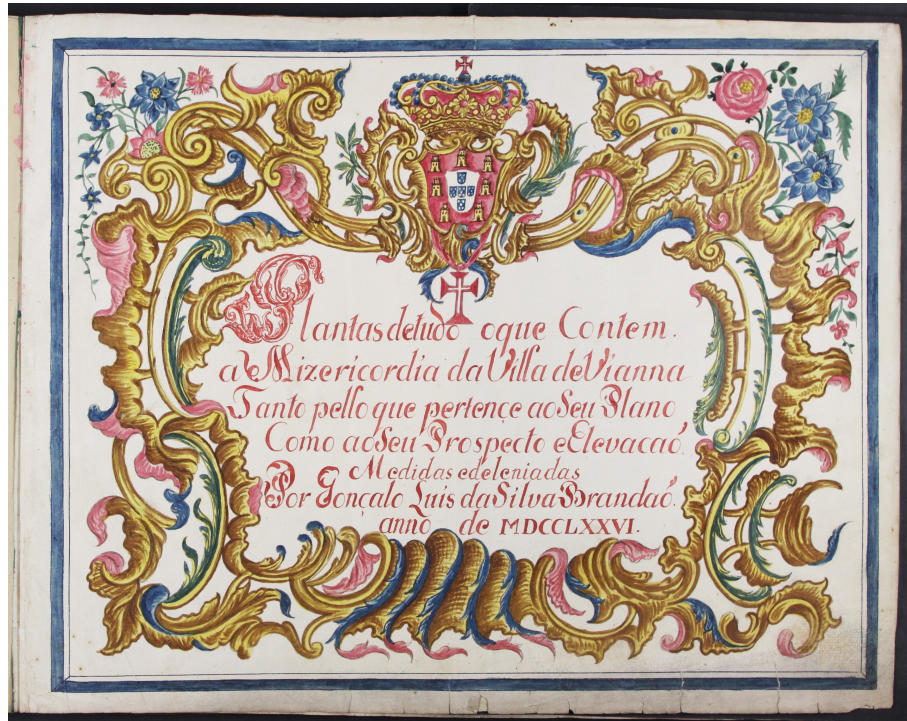 Plantas detudo oque Contem.
a Mizericordia da Villa de Vianna
Tanto pello que pertençe ao Seu Plano
Como ao Seu Prospecto e Elevacaõ.
Medidas e deleniadas
Por Gonçalo Luis da Silva Brandaõ.
anno de MDCCLXXVI.